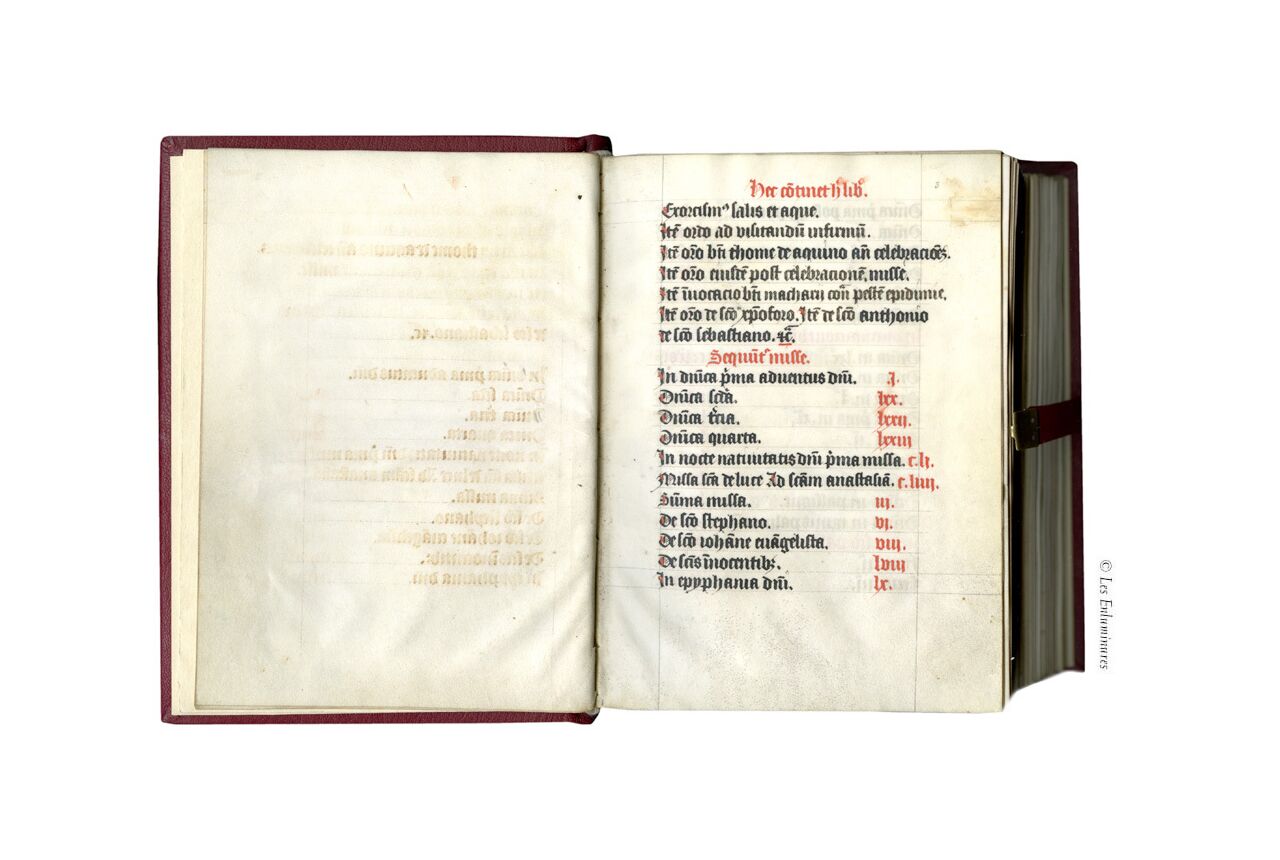 Hec cōtinet h lib.
Exorcism⁹ salis et aque.
Itē ordo ad visitandū infirmū.
Itē orō bti thome de aquino añ celebraciōēs.
Itē orō eiusdē post celebracionē misse.
Itē īuocacio bti macharii con pestē epidimie.
Itē orō de scō xpoforo. Itē de scō anthonio
de scō sebastiano. ⁊c̄.
Sequūt misse.
In dnīca pma aduentus dnī. j.
Dnīca scda. lxx.
Dnīca tcia. lxxij.
Dnīca quarta. lxxiij
In nocte natiuitatis dnī pma missa. c.lj.
Missa scā de luce Ad scām anastasiā. c.liij.
Sūma missa. iij.
De scō stephano. vj.
De scō iohāne euāgelista. viij.
De scīs īnocentib₃. lviij
In epyphania dnī. lx.
© Les Enluminures